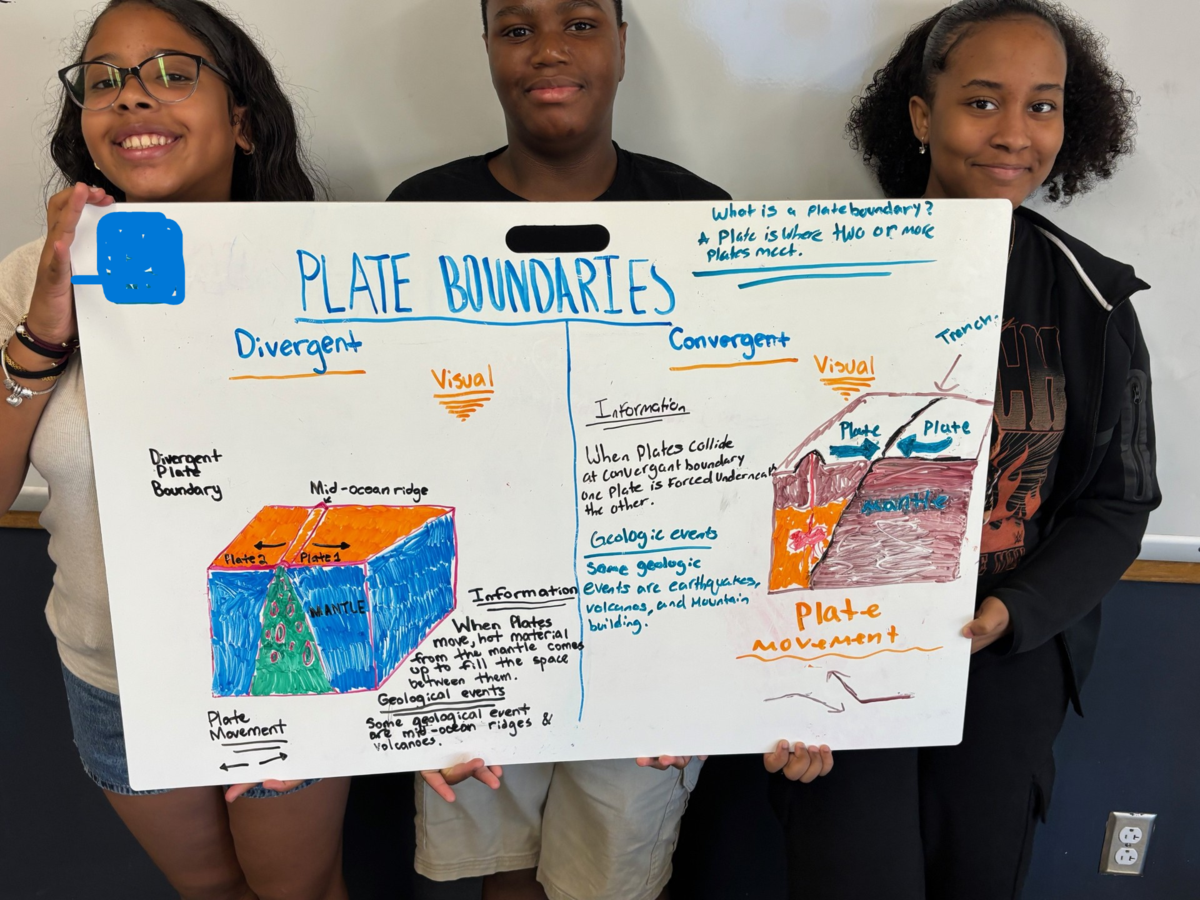 What is a plate boundary?
A Plate is where two or more
plates meet.
PLATE BOUNDARIES
Divergent
Visual
Divergent
Plate
Boundary
Mid-ocean ridge
Plate 2
Plate 1
MANTLE
Information
When Plates
move, hot material
from the mantle comes
up to fill the space
between them.
Geological events
Some geological event
are mid-ocean ridges &
volcanoes.
Plate
Movement
Convergent
Visual
Trench
Information
When Plates Collide
at convergant boundary
one Plate is Forced Underneath
the other.
Geologic events
Some geologic
events are earthquakes,
volcanos, and Mountain
building.
Plate
Plate
mantle
Plate
movement